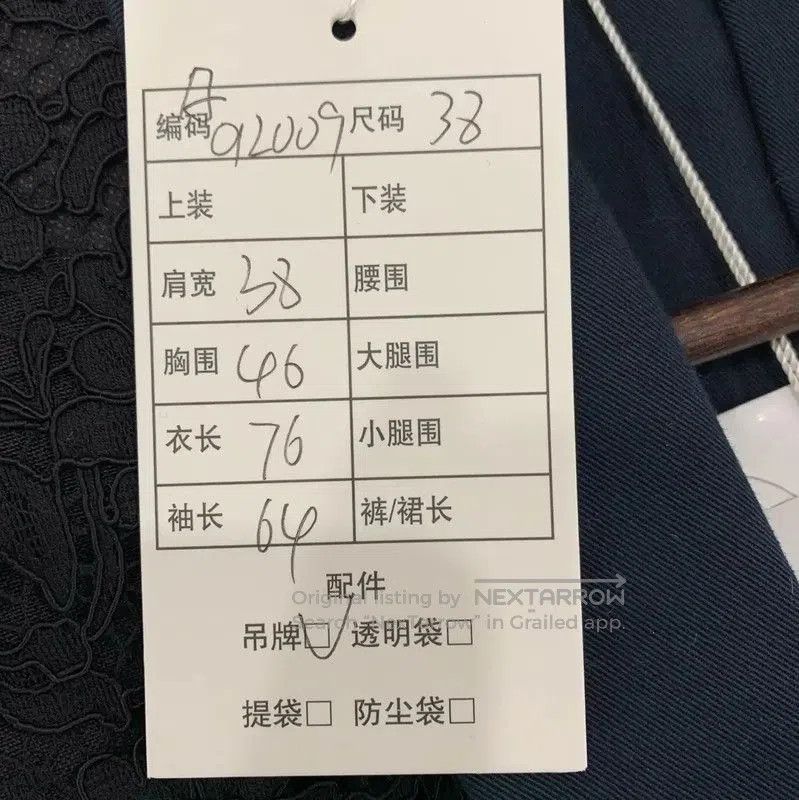 编码 a2009 尺码 38
上装 下装
肩宽 38 腰围
胸围 46 大腿围
衣长 76 小腿围
袖长 64 裤/裙长
配件
Original listing by NEXTARROW
Search "NexTarrow" in Grailed app.
吊牌☑ 透明袋□
提袋□ 防尘袋□